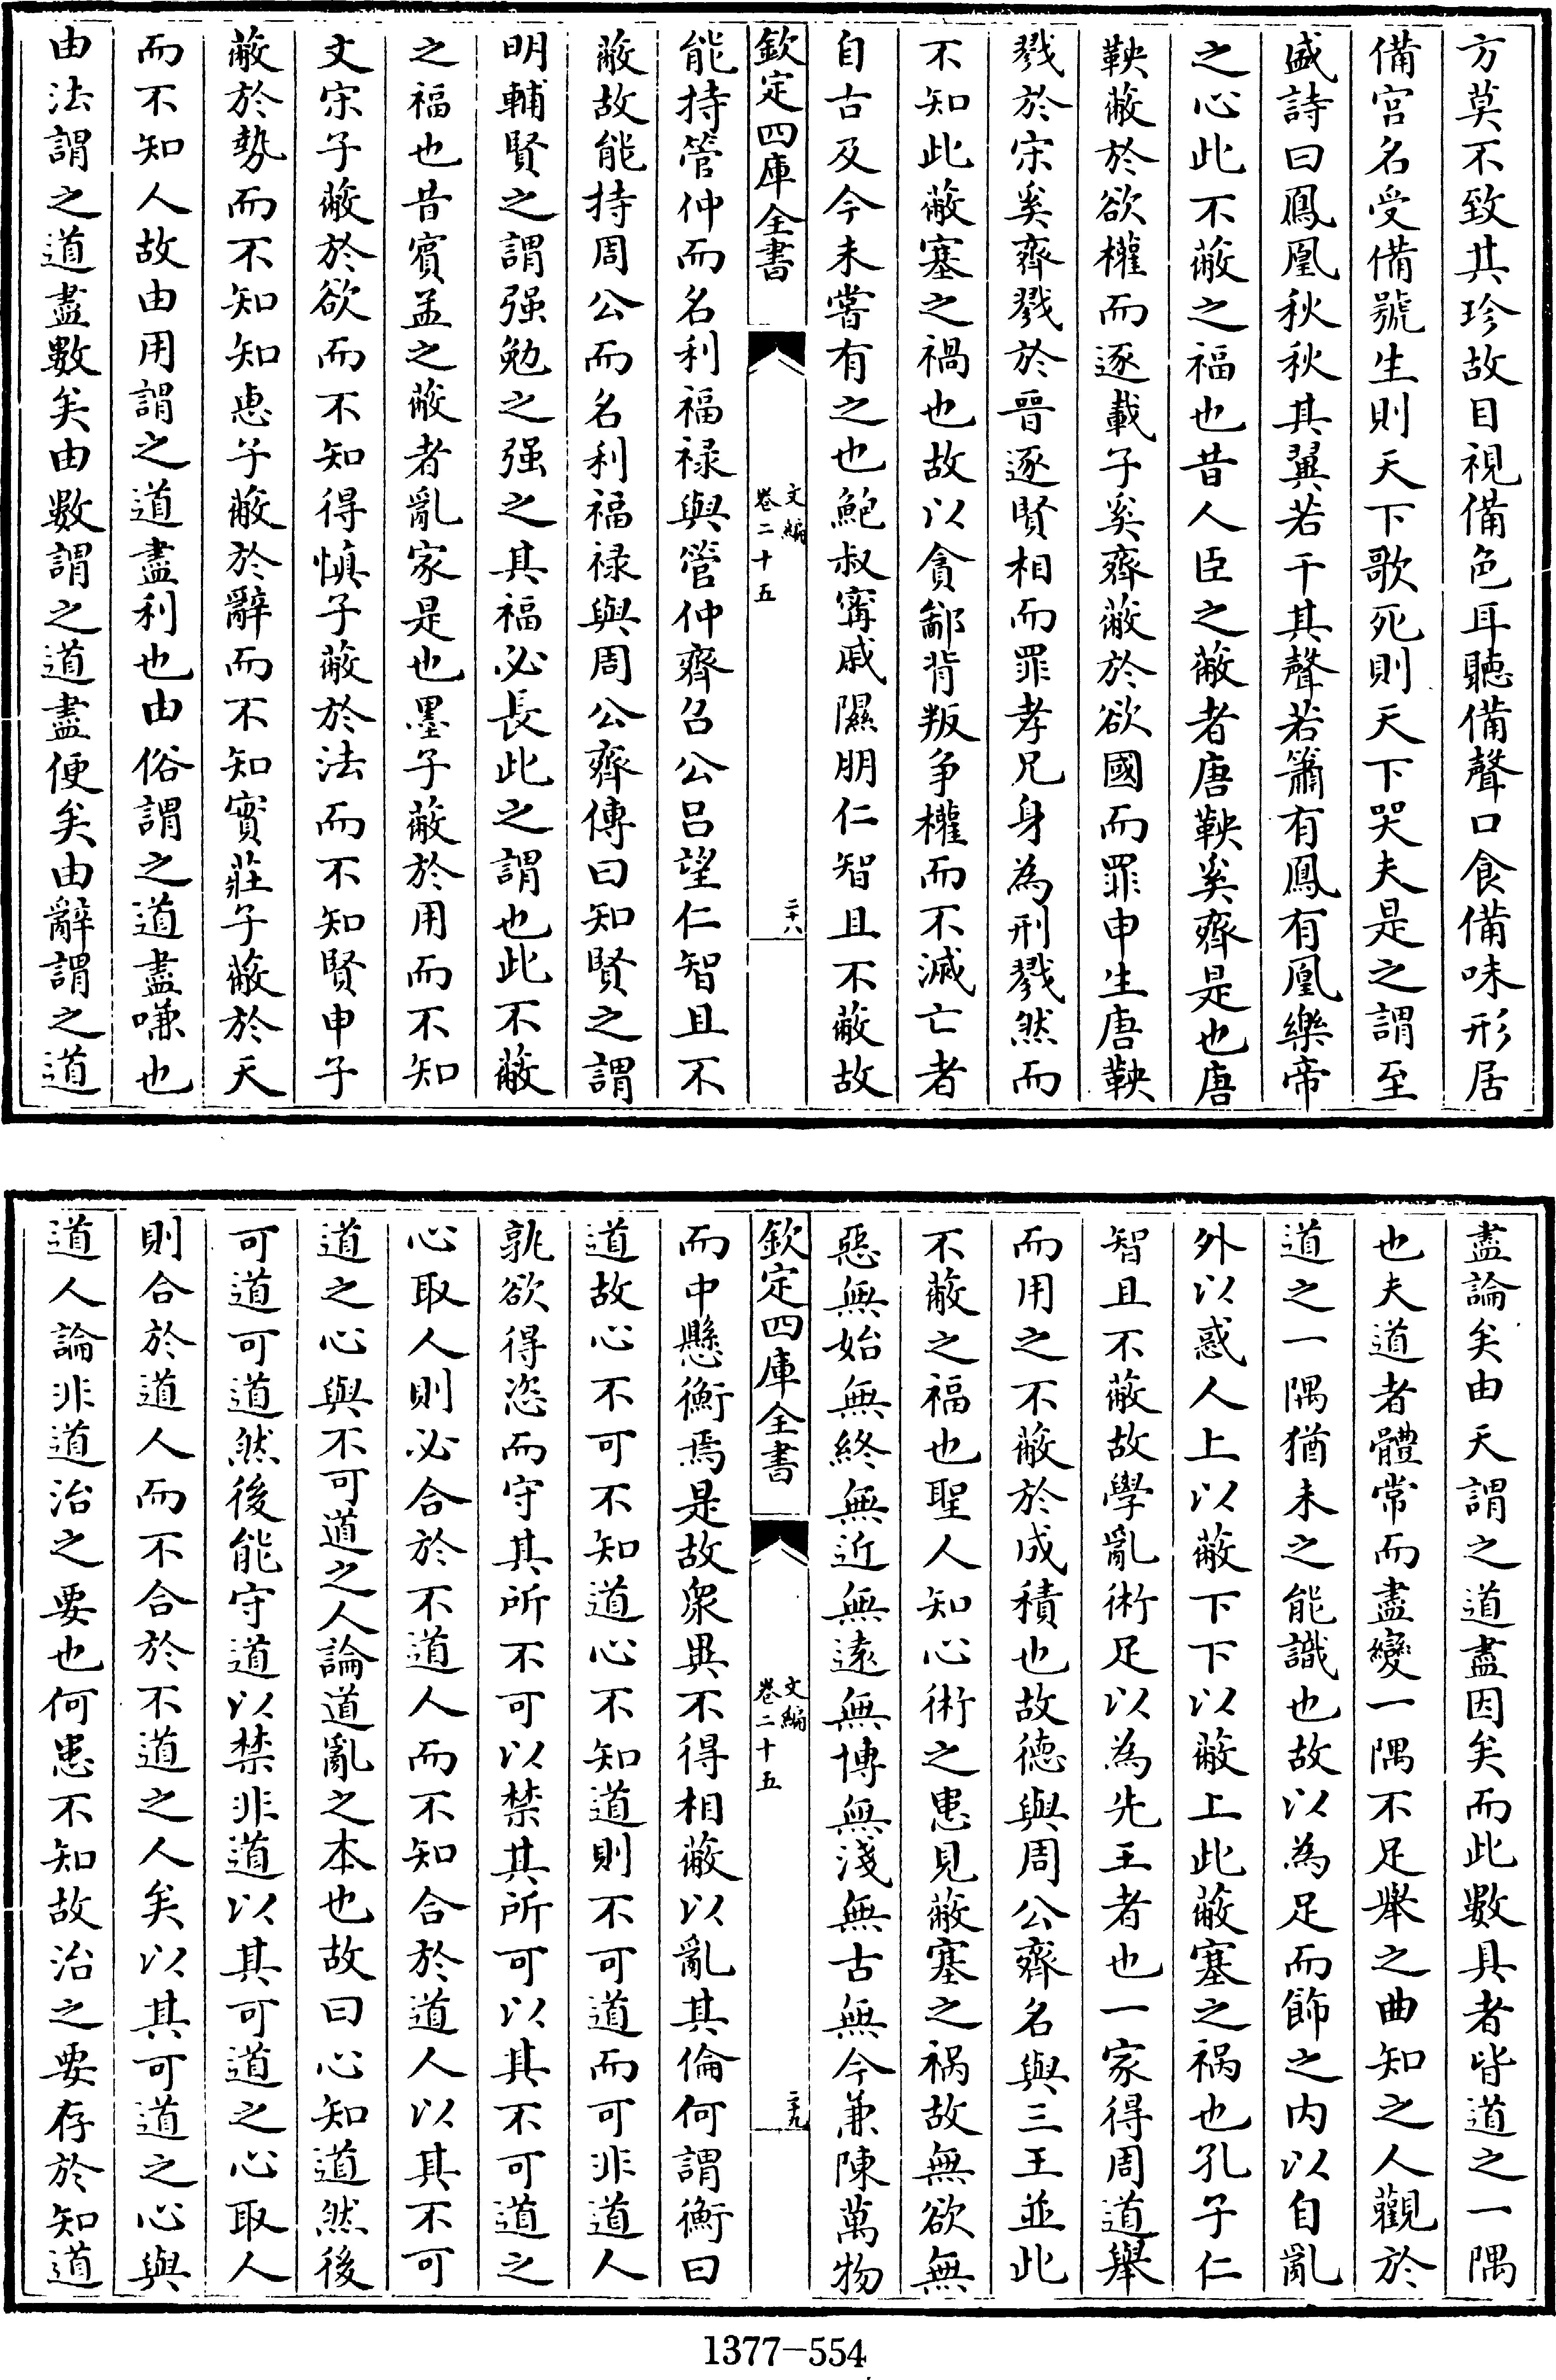 方莫不致其珍故目視備色耳聽備聲口食備味形居
備宫名受備號生則天下歌死則天下哭夫是之謂至
盛詩曰鳳凰秋秋其翼若干其聲若簫有鳳有凰樂帝
之心此不蔽之福也昔人臣之蔽者唐鞅奚齊是也唐
鞅蔽於欲權而逐載子奚齊蔽於欲國而罪申生唐鞅
戮於宋奚齊戮於晉逐賢相而罪孝兄身為刑戮然而
不知此蔽塞之禍也故以貪鄙背叛争權而不滅亡者
自古及今未嘗有之也鮑叔寗戚隰朋仁智且不蔽故
欽定四庫全書
文編
卷二十五
二十八
能持管仲而名利福禄與管仲齊召公吕望仁智且不
蔽故能持周公而名利福禄與周公齊傳曰知賢之謂
明輔賢之謂强勉之强之其福必長此之謂也此不蔽
之福也昔賓孟之蔽者亂家是也墨子蔽於用而不知
文宋子蔽於欲而不知得慎子蔽於法而不知賢申子
蔽於勢而不知知惠子蔽於辭而不知實莊子蔽於天
而不知人故由用謂之道盡利也由俗謂之道盡嗛也
由法謂之道盡數矣由數謂之道盡便矣由辭謂之道
盡論矣由天謂之道盡因矣而此數具者皆道之一隅
也夫道者體常而盡變一隅不足舉之曲知之人觀於
道之一隅猶未之能識也故以為足而飾之内以自亂
外以惑人上以蔽下下以蔽上此蔽塞之禍也孔子仁
智且不蔽故學亂術足以為先王者也一家得周道舉
而用之不蔽於成積也故德與周公齊名與三王並此
不蔽之福也聖人知心術之患見蔽塞之禍故無欲無
惡無始無終無近無遠無博無淺無古無今兼陳萬物
欽定四庫全書
文編
卷二十五
二十九
而中懸衡焉是故衆異不得相蔽以亂其倫何謂衡曰
道故心不可不知道心不知道則不可道而可非道人
孰欲得恣而守其所不可以禁其所可以其不可道之
心取人則必合於不道人而不知合於道人以其不可
道之心與不可道之人論道亂之本也故曰心知道然後
可道可道然後能守道以禁非道以其可道之心取人
則合於道人而不合於不道之人矣以其可道之心與
道人論非道治之要也何患不知故治之要存於知道
1377—554